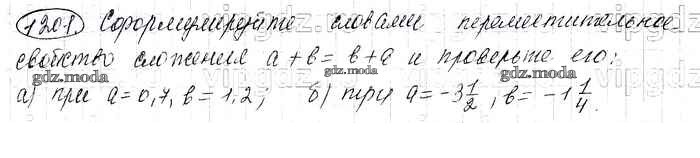 1201. Сформулируйте словами переместительное
свойство сложения a + в = в + a и проверьте его:
gdz.moda gdz.moda gdz.moda
а) при a = 0,7, в = 1,2; б) при a = -3 1/2, в = -1 1/4.